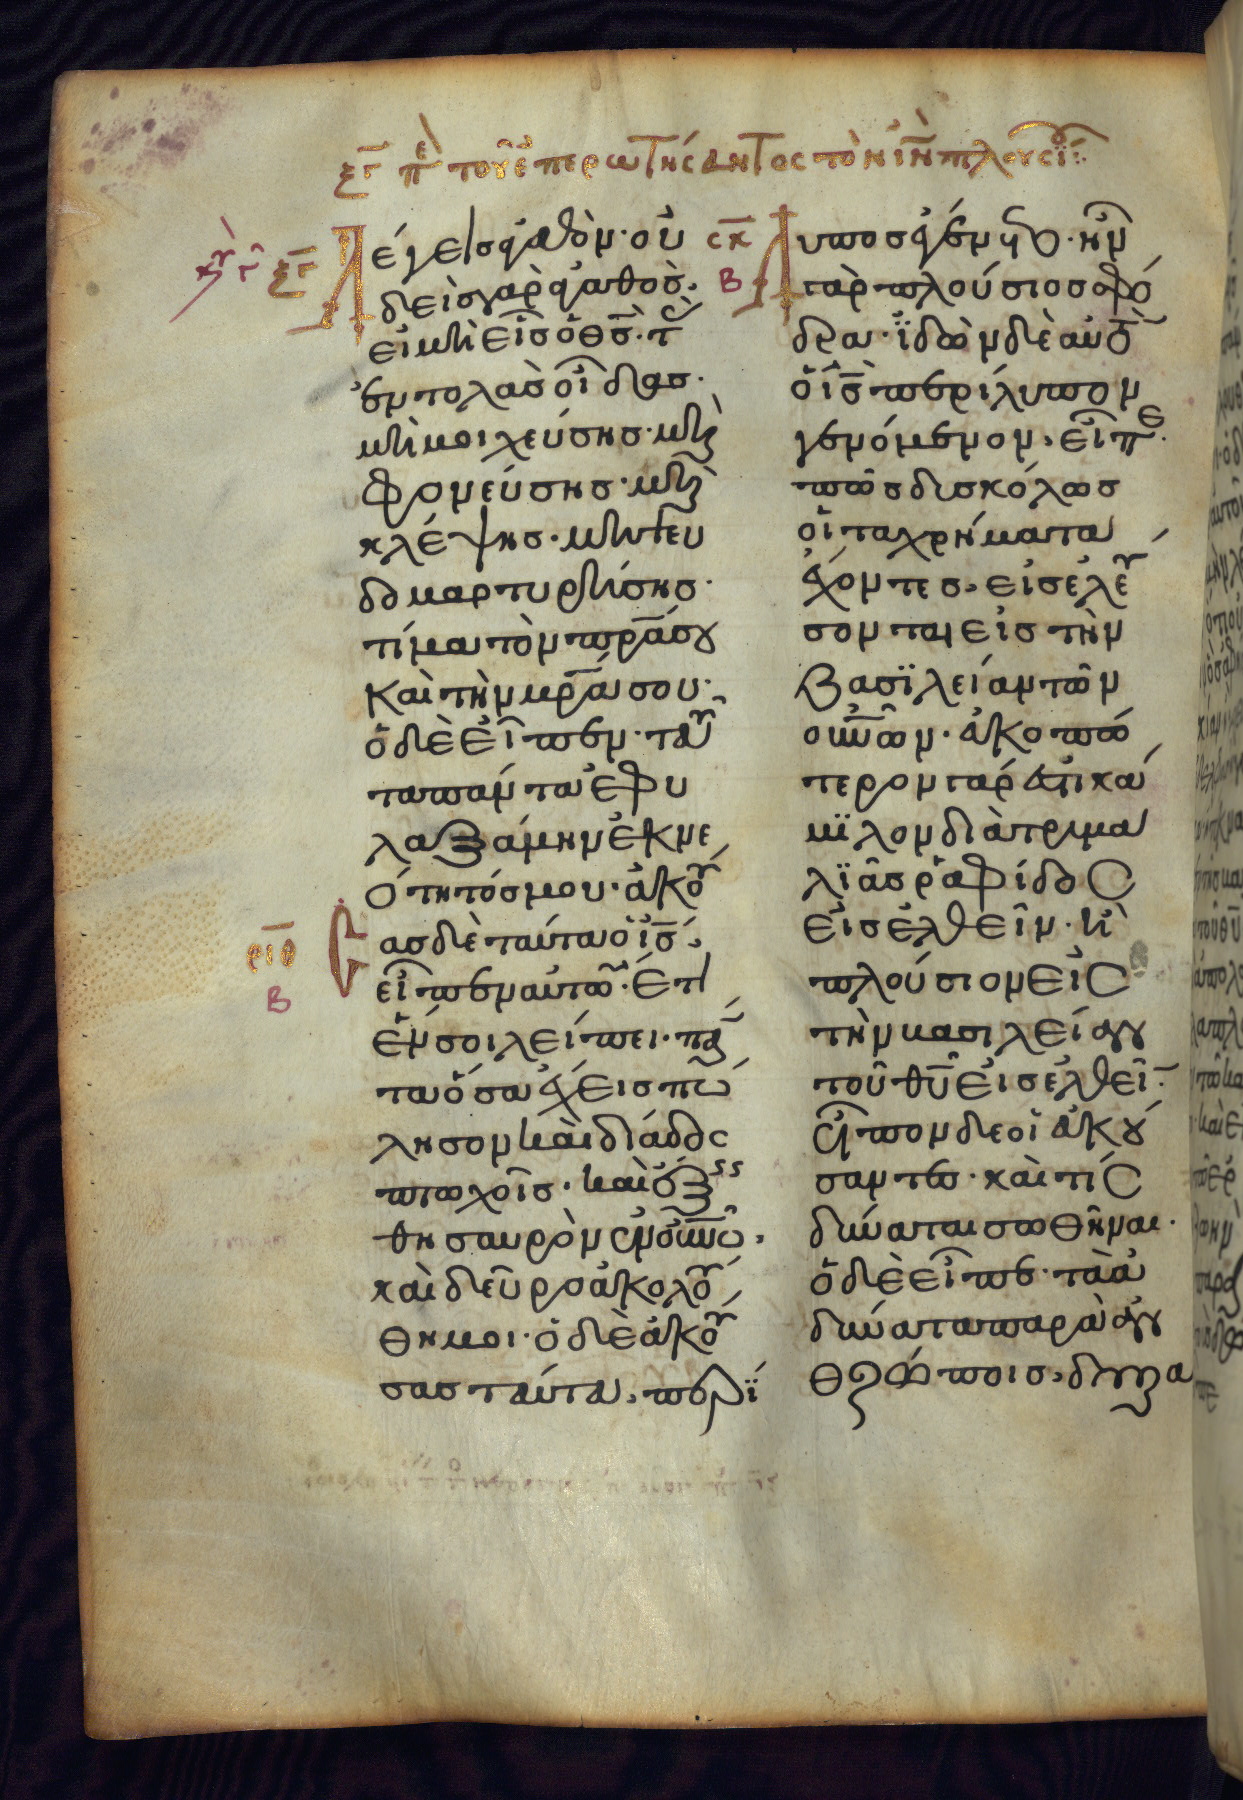 ξγ πε τοῦ ἐπερωτήσαντος τὸν ιν πλουσι
κγ γ ξγ
Λέγεις ἀγαθόν· οὐ
δεὶς γὰρ ἀγαθὸς.
εἰ μὴ εἷς ὁ θς. τ
ἐντολὰς οἶδας·
μὴ μοιχεύσης· μὴ
φονεύσης· μὴ
κλέψης· μὴ ψευ
δομαρτυρήσης·
τίμα τὸν πρασου
καὶ τὴν μρα σου·
ὁ δὲ εἶπεν· ταῦ
τα πάντα ἐφυ
λαξάμην ἐκ νε
ότητός μου· ἀκού
σας δὲ ταῦτα ὁ ις.
ριθ
β
εἶπεν αὐτῶ· ἔτι
ἕν σοι λείπει· πά
τα ὅσα ἔχεις πώ
λησον καὶ διάδος
πτωχοῖς· καὶ ἕξεις
θησαυρὸν ἐν οὐνῶ.
καὶ δεῦρο ἀκολού
θη μοι· ὁ δὲ ἀκού
σας ταῦτα, περί
σκ
β
λυπος ἐγένετο· ἦν
γὰρ πλούσιος σφό
δρα· ἰδὼν δὲ αὐτὸ
ὁ ις περίλυπον
γενόμενον, εἶπε·
πῶς δισκόλως
οἱ τα χρήματα
ἔχοντες, εἰσελεύ
σονται εἰς τὴν
βασιλείαν τῶν
οὐνῶν· ἀκοπώ
τερον γάρ ἐστι κά
μιλον διὰ τριμα
λιᾶς ῥαφίδος
εἰσελθεῖν· ἢ
πλούσιον εἰς
τὴν βασιλείαν
τοῦ θυ εἰσελθεῖ·
εἶπον δε οἱ ἀκού
σαντες· καὶ τίς
δύναται σωθῆναι·
ὁ δὲ εἶπε· τὰ ἀ
δύνατα παρὰ ἀν
θρώποις, δυνα